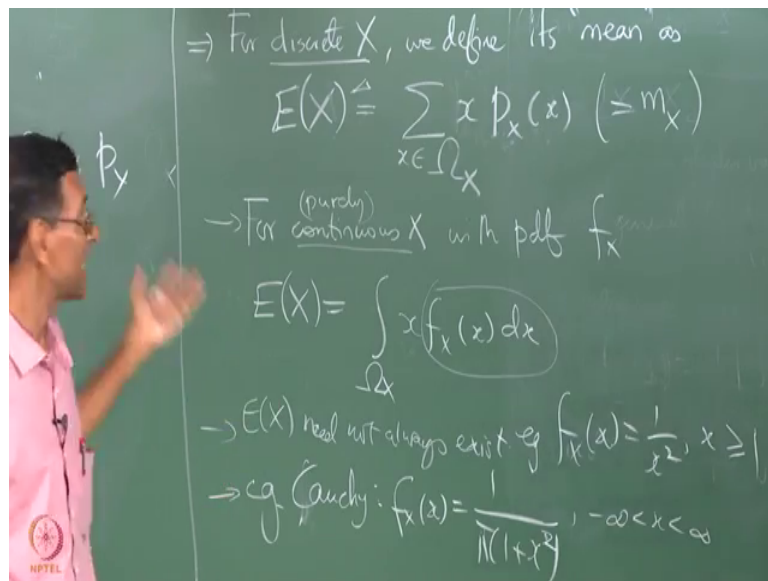 ⇒ For discrete X, we define its "mean" as
E(X) ≜ ∑ x p_X(x) (= m_X)
x ∈ Ω_X
p_Y
(purely)
→ For continuous X with pdf f_X
E(X) = ∫ x f_X(x) dx
Ω_X
→ E(X) need not always exist eg f_X(x) = 1/x², x ≥ 1
→ eg Cauchy: f_X(x) = 1/(π(1+x²)), -∞ < x < ∞
NPTEL